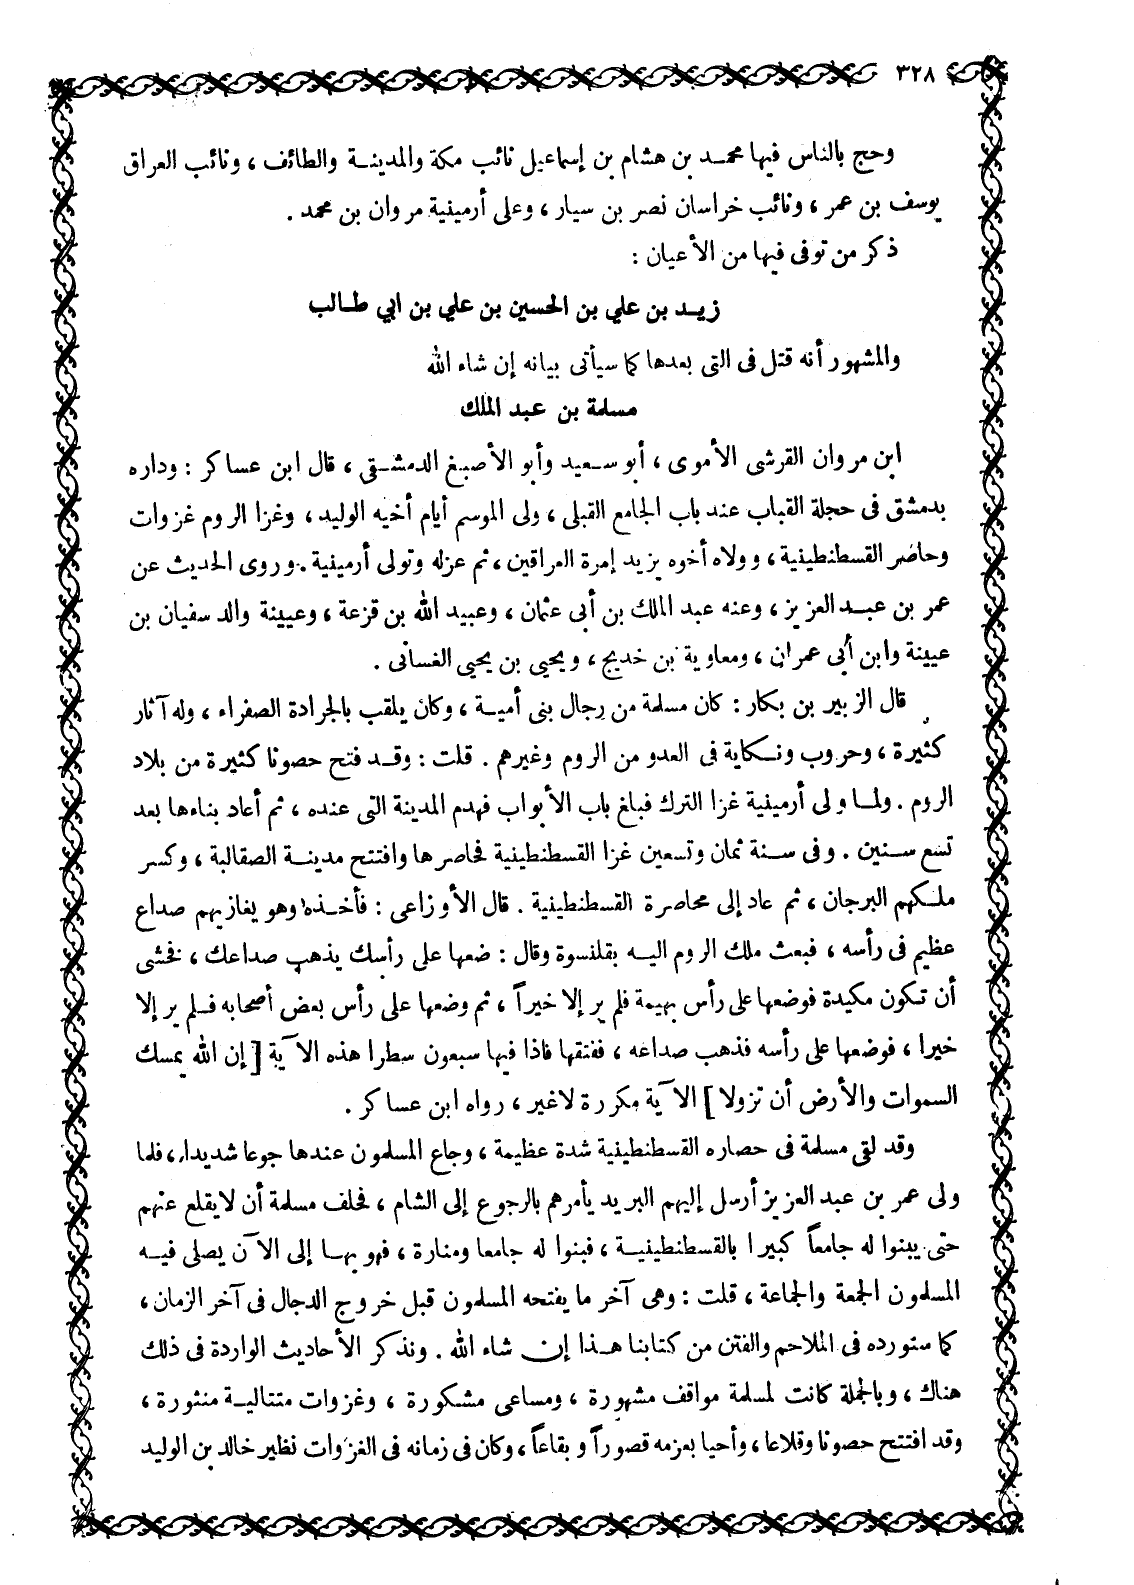 ٣٢٨
وحج بالناس فيها محمد بن هشام بن إسماعيل نائب مكة والمدينة والطائف ، ونائب العراق
يوسف بن عمر ، ونائب خراسان نصر بن سيار ، وعلى أرمينية مروان بن محمد .
ذكر من توفى فيها من الأعيان :
زيد بن علي بن الحسين بن علي بن ابي طالب
والمشهور أنه قتل فى التى بعدها كما سيأتى بيانه إن شاء الله
مسلمة بن عبد الملك
ابن مروان القرشى الأموى ، أبو سعيد وأبو الأصبغ الدمشقى ، قال ابن عساكر : وداره
بدمشق فى حجلة القباب عند باب الجامع القبلى ، ولى الموسم أيام أخيه الوليد ، وغزا الروم غزوات
وحاضر القسطنطينية ، وولاه أخوه يزيد إمرة العراقين ، ثم عزله وتولى أرمينية . وروى الحديث عن
عمر بن عبد العزيز ، وعنه عبد الملك بن أبى عثمان ، وعبيد الله بن قزعة ، وعيينة والد سفيان بن
عيينة وابن أبى عمران ، ومعاوية بن خديج ، ويحيى بن يحيى الغسانى .
قال الزبير بن بكار : كان مسلمة من رجال بنى أمية ، وكان يلقب بالجرادة الصفراء ، وله آثار
كثيرة ، وحروب ونكاية فى العدو من الروم وغيرهم . قلت : وقد فتح حصونا كثيرة من بلاد
الروم . ولما ولى أرمينية غزا الترك فبلغ باب الأبواب فهدم المدينة التى عنده ، ثم أعاد بناءها بعد
تسع سنين . وفى سنة ثمان وتسعين غزا القسطنطينية فحاصرها وافتتح مدينة الصقالبة ، وكسر
ملكهم البرجان ، ثم عاد إلى محاصرة القسطنطينية . قال الأوزاعى : فأخذه وهو يغازيهم صداع
عظيم فى رأسه ، فبعث ملك الروم اليه بقلنسوة وقال : ضعها على رأسك يذهب صداعك ، فخشى
أن تكون مكيدة فوضعها على رأس بهيمة فلم ير إلا خيراً ، ثم وضعها على رأس بعض أصحابه فلم ير إلا
خيرا ، فوضعها على رأسه فذهب صداعه ، ففتقها فاذا فيها سبعون سطرا هذه الآية [ إن الله يمسك
السموات والأرض أن تزولا ] الآية مكررة لاغير ، رواه ابن عساكر .
وقد لقى مسلمة فى حصاره القسطنطينية شدة عظيمة ، وجاع المسلمون عندها جوعا شديدا ، فلما
ولى عمر بن عبد العزيز أرسل إليهم البريد يأمرهم بالرجوع إلى الشام ، فحلف مسلمة أن لايقلع عنهم
حتى يبنوا له جامعاً كبيرا بالقسطنطينية ، فبنوا له جامعا ومنارة ، فهو بها إلى الآن يصلى فيه
المسلمون الجمعة والجماعة ، قلت : وهى آخر ما يفتحه المسلمون قبل خروج الدجال فى آخر الزمان ،
كما سنورده فى الملاحم والفتن من كتابنا هذا إن شاء الله . ونذكر الأحاديث الواردة فى ذلك
هناك ، وبالجملة كانت لمسلمة مواقف مشهورة ، ومساعى مشكورة ، وغزوات متتالية منثورة ،
وقد افتتح حصونا وقلاعا ، وأحيا بعزمه قصوراً وبقاعاً ، وكان فى زمانه فى الغزوات نظير خالد بن الوليد